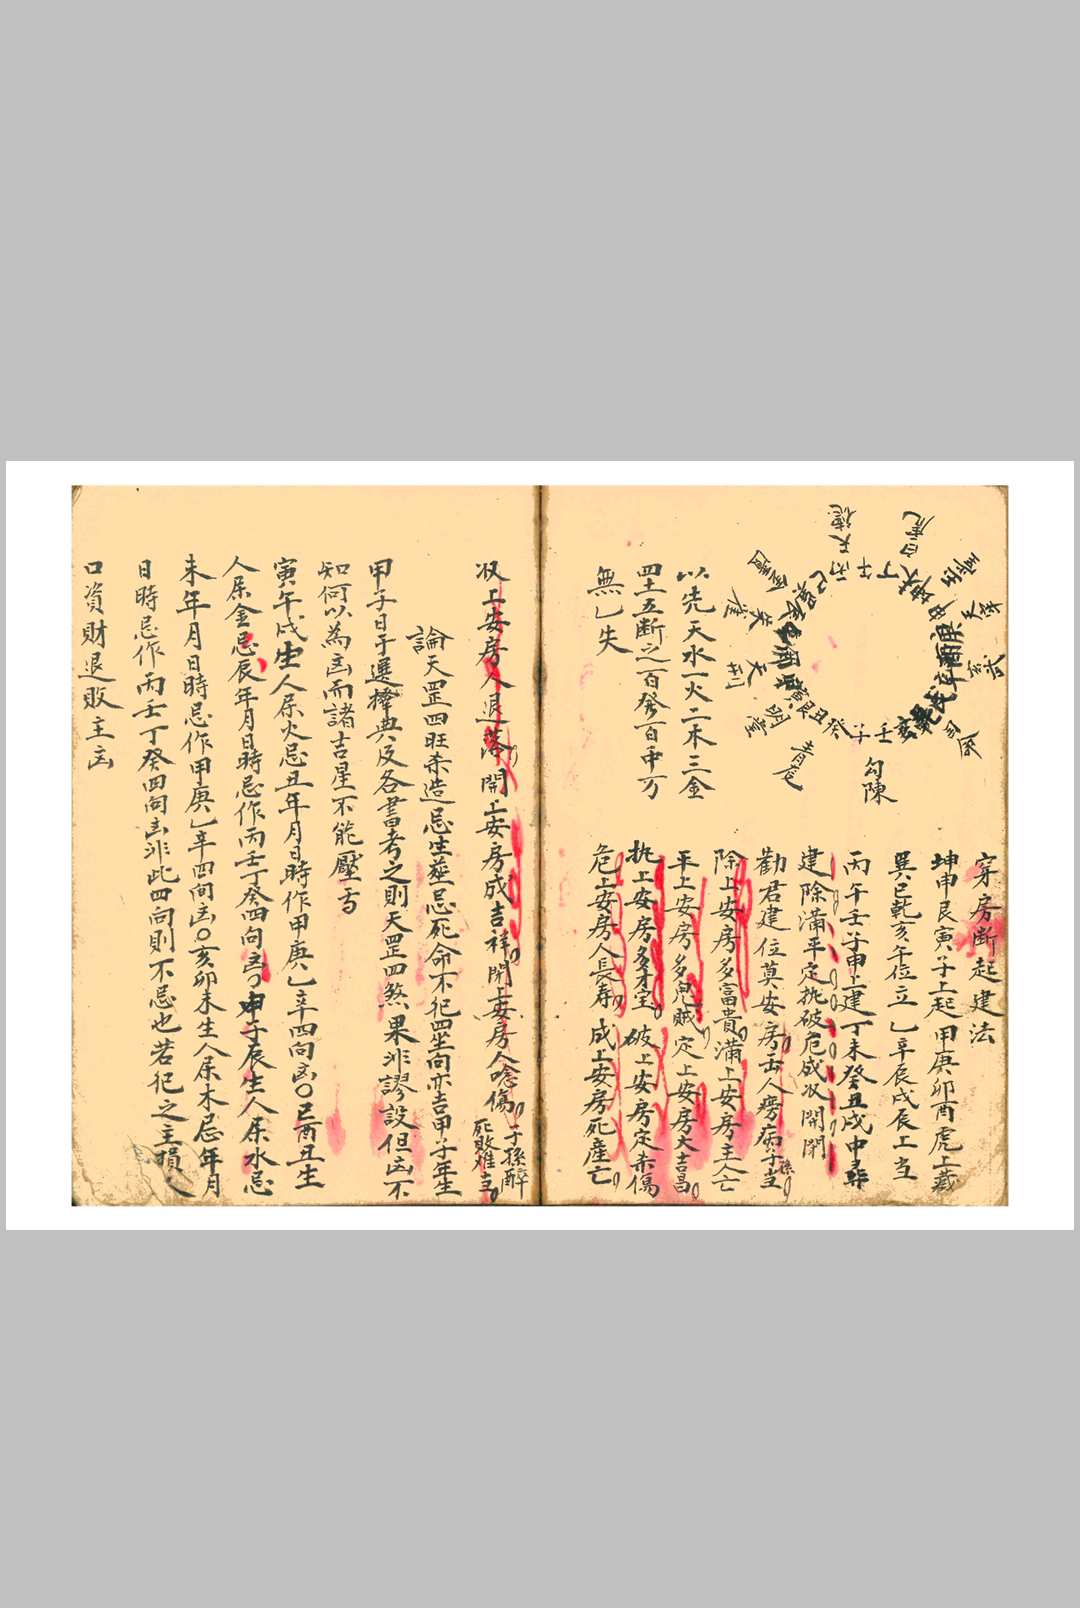 穿房断起建法
坤申艮寅子上起甲庚卯酉虎上藏
巽巳乾亥午位立乙辛辰戌辰上当
丙午壬子申上建丁未癸丑戌中尋
建除滿平定执破危成収開閉
勸君建位莫安房岳人癆病子孫当
除上安房多富貴滿上安房主人亡
平上安房多鬼賊定上安房大吉昌
执上安房多才宝破上安房定未傷
危上安房人長寿成上安房死産亡
勾陳
青龙
明堂
天刑
朱雀
金匱
天德
白虎
以先天水一火二木三金
四土五断之百發百中万
無乙失
収上安房人退落開上安房成吉祥閉上安房人唸傷子孫酔死敗难当
論天罡四旺杀造忌生莚忌死命不犯四坐向亦吉甲子年生
甲子日于選擇典及各書考之則天罡四煞果非謬設但凶不
知何以為凶而諸吉星不能壓乎
寅午戌生人屎火忌丑年月日時作甲庚乙辛四向凶〇巳酉丑生
人屎金忌辰年月日時忌作丙壬丁癸四向凶申子辰生人屎水忌
未年月日時忌作甲庚乙辛四向凶〇亥卯未生人屎木忌年月
日時忌作丙壬丁癸四向凶非此四向則不忌也若犯之主損人
口資財退敗主凶